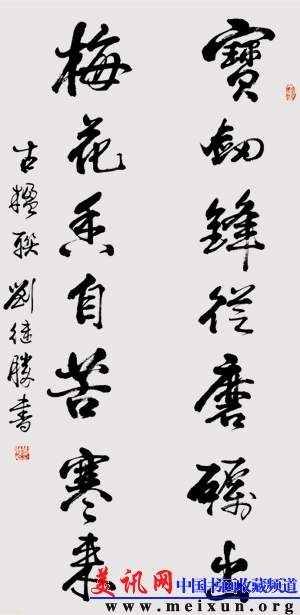 寶劍鋒從磨礪出
梅花香自苦寒來
古楹聯 劉继勝書
美讯网 中国书画收藏频道
www.meixun.org